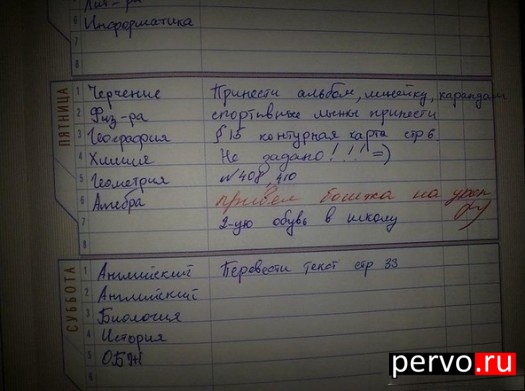 Лит-ра
6 Информатика
7
8
ПЯТНИЦА
1 Черчение Принести альбом, линейку, карандаш
2 Физ-ра спортивные лыжы принести
3 География § 15 контурная карта стр 6
4 Химия Не задано! !!! =)
5 Геометрия №408, 410
6 Алгебра на урок
7 2-ую обувь в школу
8
СУББОТА
1 Английский Перевести текст стр 33
2 Английский
3 Биология
4 История
5 ОБЖ
6
pervo.ru